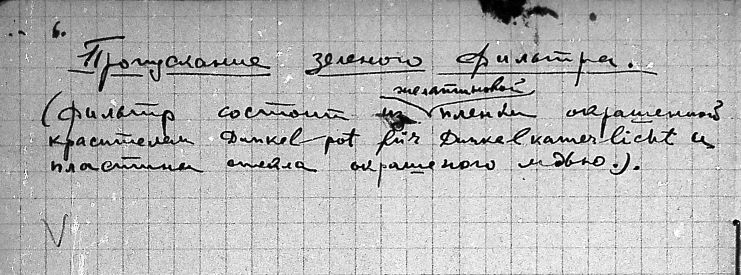 6.
Пропускание зеленого фильтра.
желатиновой
(фильтр состоит из пленки окрашенной
красителем Dunkel-rot für Dunkelkamerlicht и
пластины стекла окрашеного медью.).